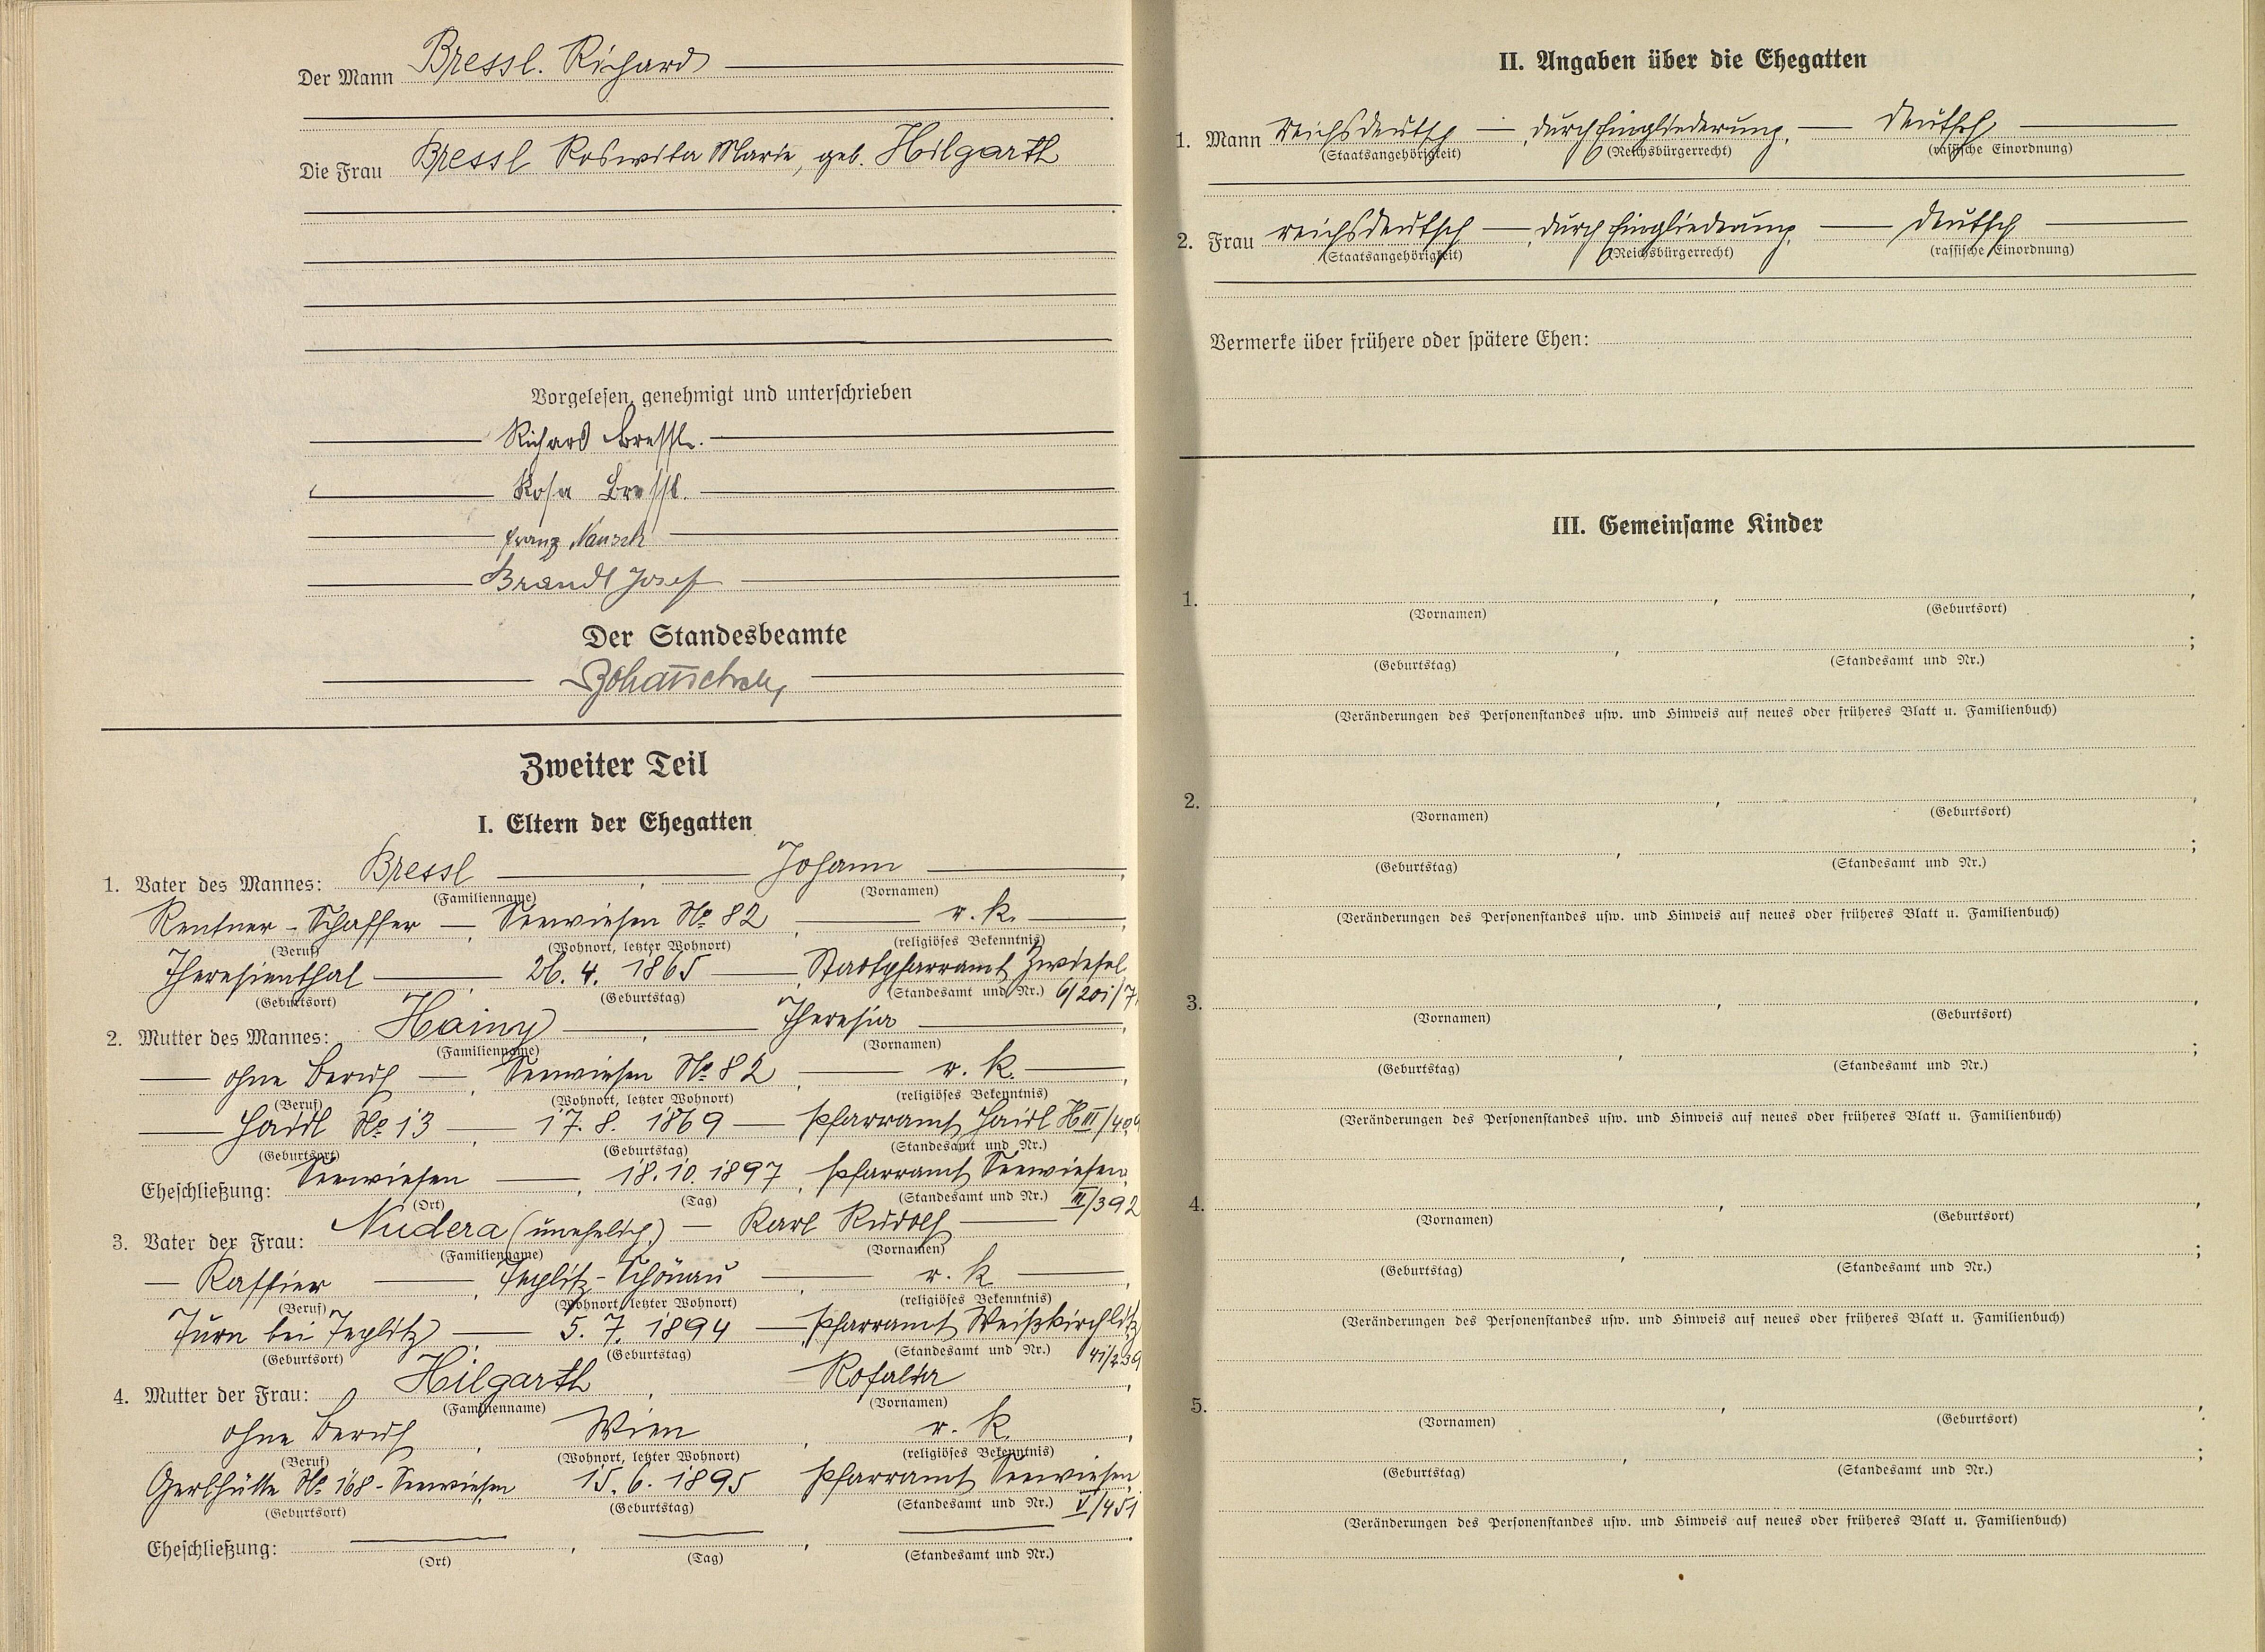 Der Mann Bressl. Richard
Die Frau Bressl Roswita Marie, geb. Hilgarth
Vorgelesen, genehmigt und unterschrieben
Richard Bressl.
Rosa Bressl.
Franz
Brandl Josef
Der Standesbeamte
Zweiter Teil
I. Eltern der Ehegatten
1. Vater des Mannes: Bressl, Johann,
(Familienname) (Vornamen)
Rentner - Schaffer, Seewiesen No 82, r. k.,
(Beruf) (Wohnort, letzter Wohnort) (religiöses Bekenntnis)
Theresienthal, 26. 4. 1865, Stadtpfarramt Zwiesel
(Geburtsort) (Geburtstag) (Standesamt und Nr.)
2. Mutter des Mannes: Hainy, Theresia,
(Familienname) (Vornamen)
ohne Beruf, Seewiesen No 82, r. k.,
(Beruf) (Wohnort, letzter Wohnort) (religiöses Bekenntnis)
Haidl No 13, 17. 8. 1869 Pfarramt Haidl
(Geburtsort) (Geburtstag) (Standesamt und Nr.)
Eheschließung: Seewiesen, 18. 10. 1897, Pfarramt Seewiesen
(Ort) (Tag) (Standesamt und Nr.) III/392
3. Vater der Frau: Nudera (unehelich) - Karl Rudolf
(Familienname) (Vornamen)
Kassier, Teplitz-Schönau, r. k.,
(Beruf) (Wohnort, letzter Wohnort) (religiöses Bekenntnis)
Turn bei Teplitz, 5. 7. 1894 Pfarramt Weißkirchlitz
(Geburtsort) (Geburtstag) (Standesamt und Nr.) 41/239
4. Mutter der Frau: Hilgarth, Rosalia,
(Familienname) (Vornamen)
ohne Beruf, Wien, r. k.,
(Beruf) (Wohnort, letzter Wohnort) (religiöses Bekenntnis)
Gerlhütte No 168 - Seewiesen 15. 6. 1895 Pfarramt Seewiesen
(Geburtsort) (Geburtstag) (Standesamt und Nr.) V/451
Eheschließung:
(Ort) (Tag) (Standesamt und Nr.)
II. Angaben über die Ehegatten
1. Mann Reichsdeutsch, durch Eingliederung, deutsch
(Staatsangehörigkeit) (Reichsbürgerrecht) (rassische Einordnung)
2. Frau reichsdeutsch, durch Eingliederung, deutsch
(Staatsangehörigkeit) (Reichsbürgerrecht) (rassische Einordnung)
Vermerke über frühere oder spätere Ehen:
III. Gemeinsame Kinder
1.
(Vornamen) (Geburtsort)
(Geburtstag) (Standesamt und Nr.)
(Veränderungen des Personenstandes usw. und Hinweis auf neues oder früheres Blatt u. Familienbuch)
2.
(Vornamen) (Geburtsort)
(Geburtstag) (Standesamt und Nr.)
(Veränderungen des Personenstandes usw. und Hinweis auf neues oder früheres Blatt u. Familienbuch)
3.
(Vornamen) (Geburtsort)
(Geburtstag) (Standesamt und Nr.)
(Veränderungen des Personenstandes usw. und Hinweis auf neues oder früheres Blatt u. Familienbuch)
4.
(Vornamen) (Geburtsort)
(Geburtstag) (Standesamt und Nr.)
(Veränderungen des Personenstandes usw. und Hinweis auf neues oder früheres Blatt u. Familienbuch)
5.
(Vornamen) (Geburtsort)
(Geburtstag) (Standesamt und Nr.)
(Veränderungen des Personenstandes usw. und Hinweis auf neues oder früheres Blatt u. Familienbuch)